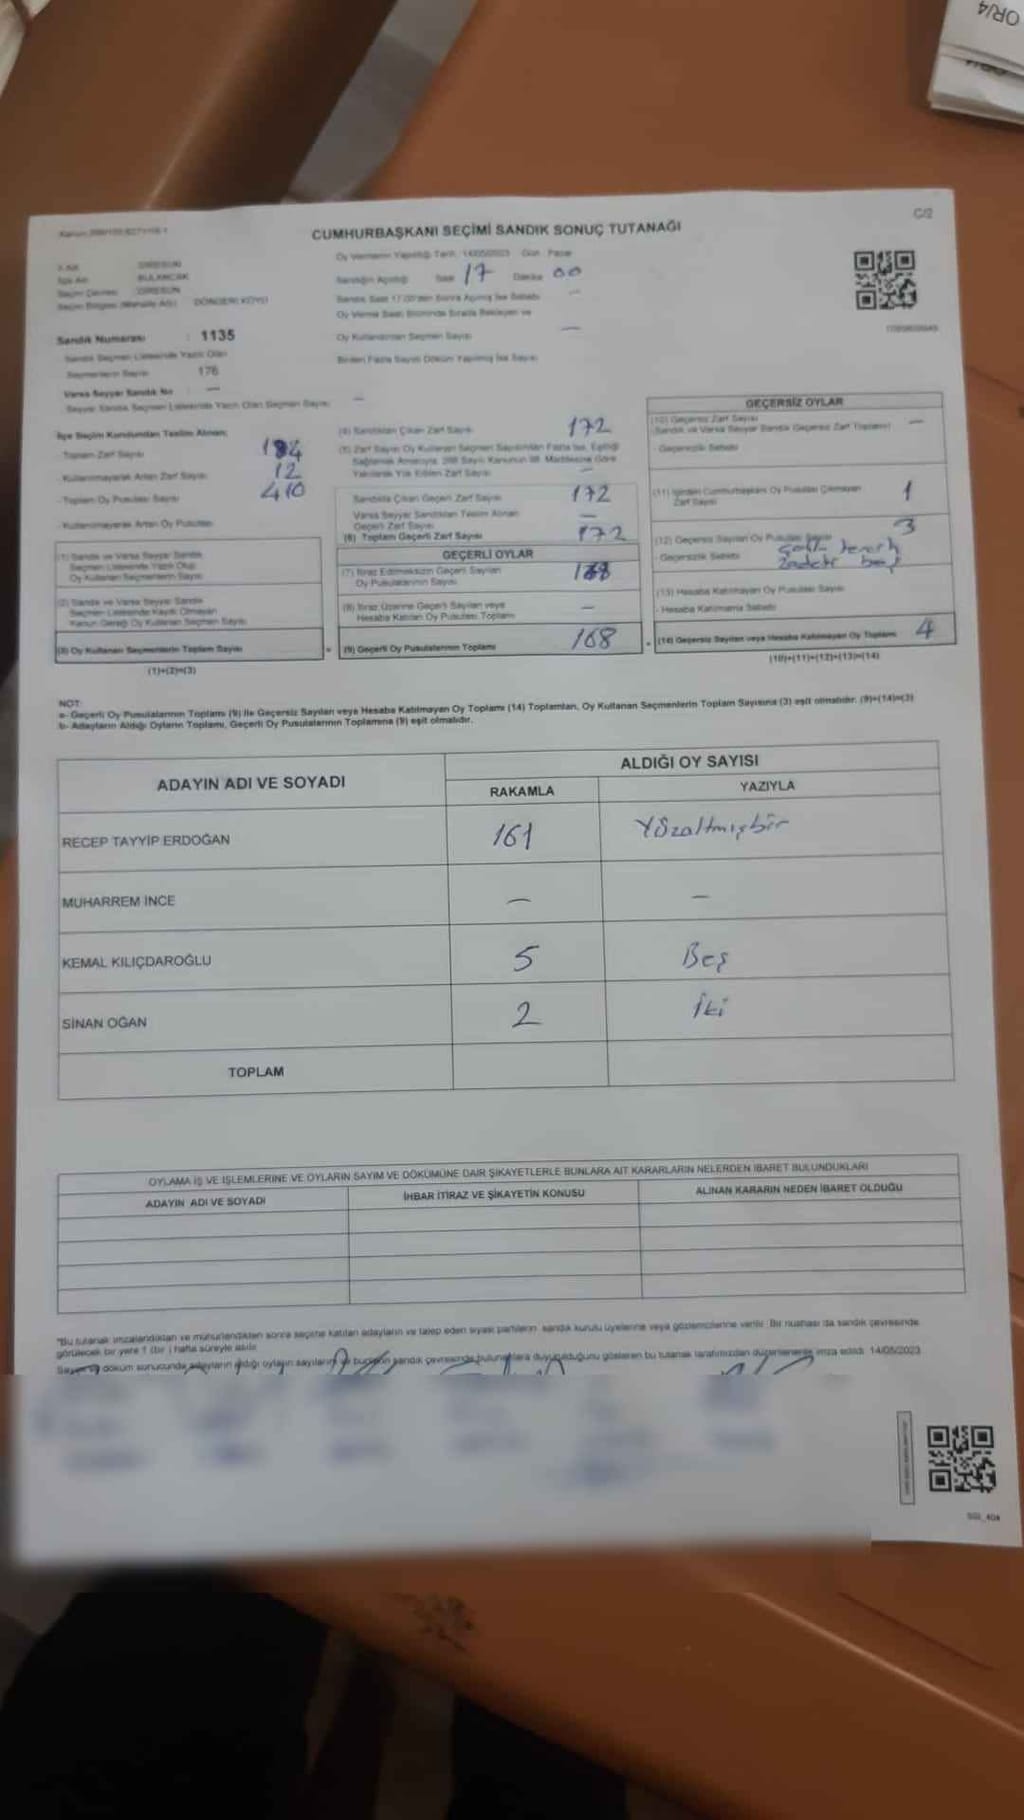 OR/4
C/2
CUMHURBAŞKANI SEÇİMİ SANDIK SONUÇ TUTANAĞI
Oy Vermenin Yapıldığı Tarih : 14/05/2023 Gün : Pazar
GİRESUN
BULANCAK
GİRESUN
Sandığın Açıldığı Saat 17 Dakika 00
Seçim Bölgesi (Mahalle Adı) DÖNGERİ KÖYÜ
Sandık Saat 17:00'den Sonra Açılmış İse Sebebi —
Oy Verme Saati Bitiminde Sırada Bekleyen ve
Oy Kullandırılan Seçmen Sayısı —
Birden Fazla Sayım Döküm Yapılmış İse Sayısı
Sandık Numarası : 1135
Sandık Seçmen Listesinde Yazılı Olan
Seçmenlerin Sayısı 176
Varsa Seyyar Sandık No : —
Seyyar Sandık Seçmen Listesinde Yazılı Olan Seçmen Sayısı —
İlçe Seçim Kurulundan Teslim Alınan;
Toplam Zarf Sayısı 184
- Kullanılmayarak Artan Zarf Sayısı 12
- Toplam Oy Pusulası Sayısı 410
- Kullanılmayarak Artan Oy Pusulası
(1) Sandık ve Varsa Seyyar Sandık
Seçmen Listesinde Yazılı Olup
Oy Kullanan Seçmenlerin Sayısı
(2) Sandık ve Varsa Seyyar Sandık
Seçmen Listesinde Kayıtlı Olmayan
Kanun Gereği Oy Kullanan Seçmen Sayısı
(3) Oy Kullanan Seçmenlerin Toplam Sayısı
(1)+(2)=(3)
(4) Sandıktan Çıkan Zarf Sayısı 172
(5) Zarf Sayısı Oy Kullanan Seçmen Sayısından Fazla İse, Eşitliği
Sağlamak Amacıyla, 298 Sayılı Kanunun 98. Maddesine Göre
Yakılarak Yok Edilen Zarf Sayısı —
Sandıkta Çıkan Geçerli Zarf Sayısı 172
Varsa Seyyar Sandıktan Teslim Alınan
Geçerli Zarf Sayısı —
(6) Toplam Geçerli Zarf Sayısı 172
GEÇERLİ OYLAR
(7) İtiraz Edilmeksizin Geçerli Sayılan
Oy Pusulalarının Sayısı 168
(8) İtiraz Üzerine Geçerli Sayılan veya
Hesaba Katılan Oy Pusulası Toplamı —
(9) Geçerli Oy Pusulalarının Toplamı 168
GEÇERSİZ OYLAR
(10) Geçersiz Zarf Sayısı
(Sandık ve Varsa Seyyar Sandık Geçersiz Zarf Toplamı) —
- Geçersizlik Sebebi
(11) İçinden Cumhurbaşkanı Oy Pusulası Çıkmayan
Zarf Sayısı 1
(12) Geçersiz Sayılan Oy Pusulası Sayısı 3
- Geçersizlik Sebebi
(13) Hesaba Katılmayan Oy Pusulası Sayısı
- Hesaba Katılmama Sebebi
(14) Geçersiz Sayılan veya Hesaba Katılmayan Oy Toplamı 4
(10)+(11)+(12)+(13)=(14)
NOT:
a- Geçerli Oy Pusulalarının Toplamı (9) ile Geçersiz Sayılan veya Hesaba Katılmayan Oy Toplamı (14) Toplamları, Oy Kullanan Seçmenlerin Toplam Sayısına (3) eşit olmalıdır. (9)+(14)=(3)
b- Adayların Aldığı Oyların Toplamı, Geçerli Oy Pusulalarının Toplamına (9) eşit olmalıdır.
ADAYIN ADI VE SOYADI
ALDIĞI OY SAYISI
RAKAMLA YAZIYLA
RECEP TAYYİP ERDOĞAN 161 Yüzaltmışbir
MUHARREM İNCE — —
KEMAL KILIÇDAROĞLU 5 Beş
SİNAN OĞAN 2 İki
TOPLAM
OYLAMA İŞ VE İŞLEMLERİNE VE OYLARIN SAYIM VE DÖKÜMÜNE DAİR ŞİKAYETLERLE BUNLARA AİT KARARLARIN NELERDEN İBARET BULUNDUKLARI
ADAYIN ADI VE SOYADI İHBAR İTİRAZ VE ŞİKAYETİN KONUSU ALINAN KARARIN NEDEN İBARET OLDUĞU
"Bu tutanak imzalandıktan ve mühürlendikten sonra seçime katılan adayların ve talep eden siyasi partilerin sandık kurulu üyelerine veya gözlemcilerine verilir. Bir nüshası da sandık çevresinde
görülecek bir yere 1 (bir ) hafta süreyle asılır.
Sayım ve döküm sonucunda adayların aldığı oyların sayılarını ve bu sandık çevresinde bulunanlara duyurulduğunu gösteren bu tutanak tarafımızdan düzenlenerek imza edildi. 14/05/2023